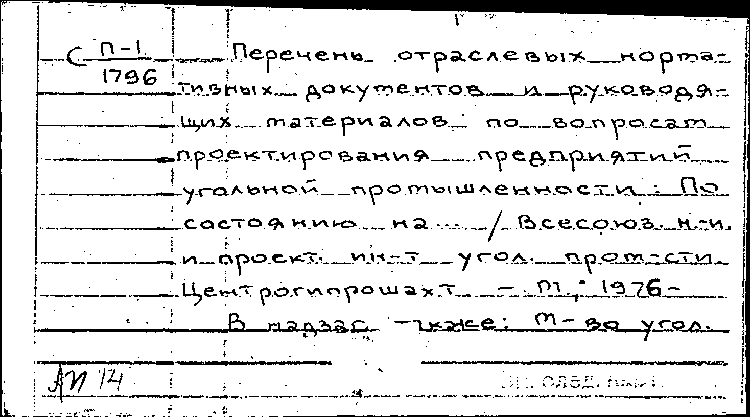 С П-1
1796
Перечень отраслевых норма-
тивных документов и руководя-
щих материалов по вопросам
проектирования предприятий
угольной промышленности: По
состоянию на ... / Всесоюз. н.-и.
и проект. ин-т угол. пром-сти
Центрогипрошахт - М., 1976-
В надзаг. также: М-во угол.
14